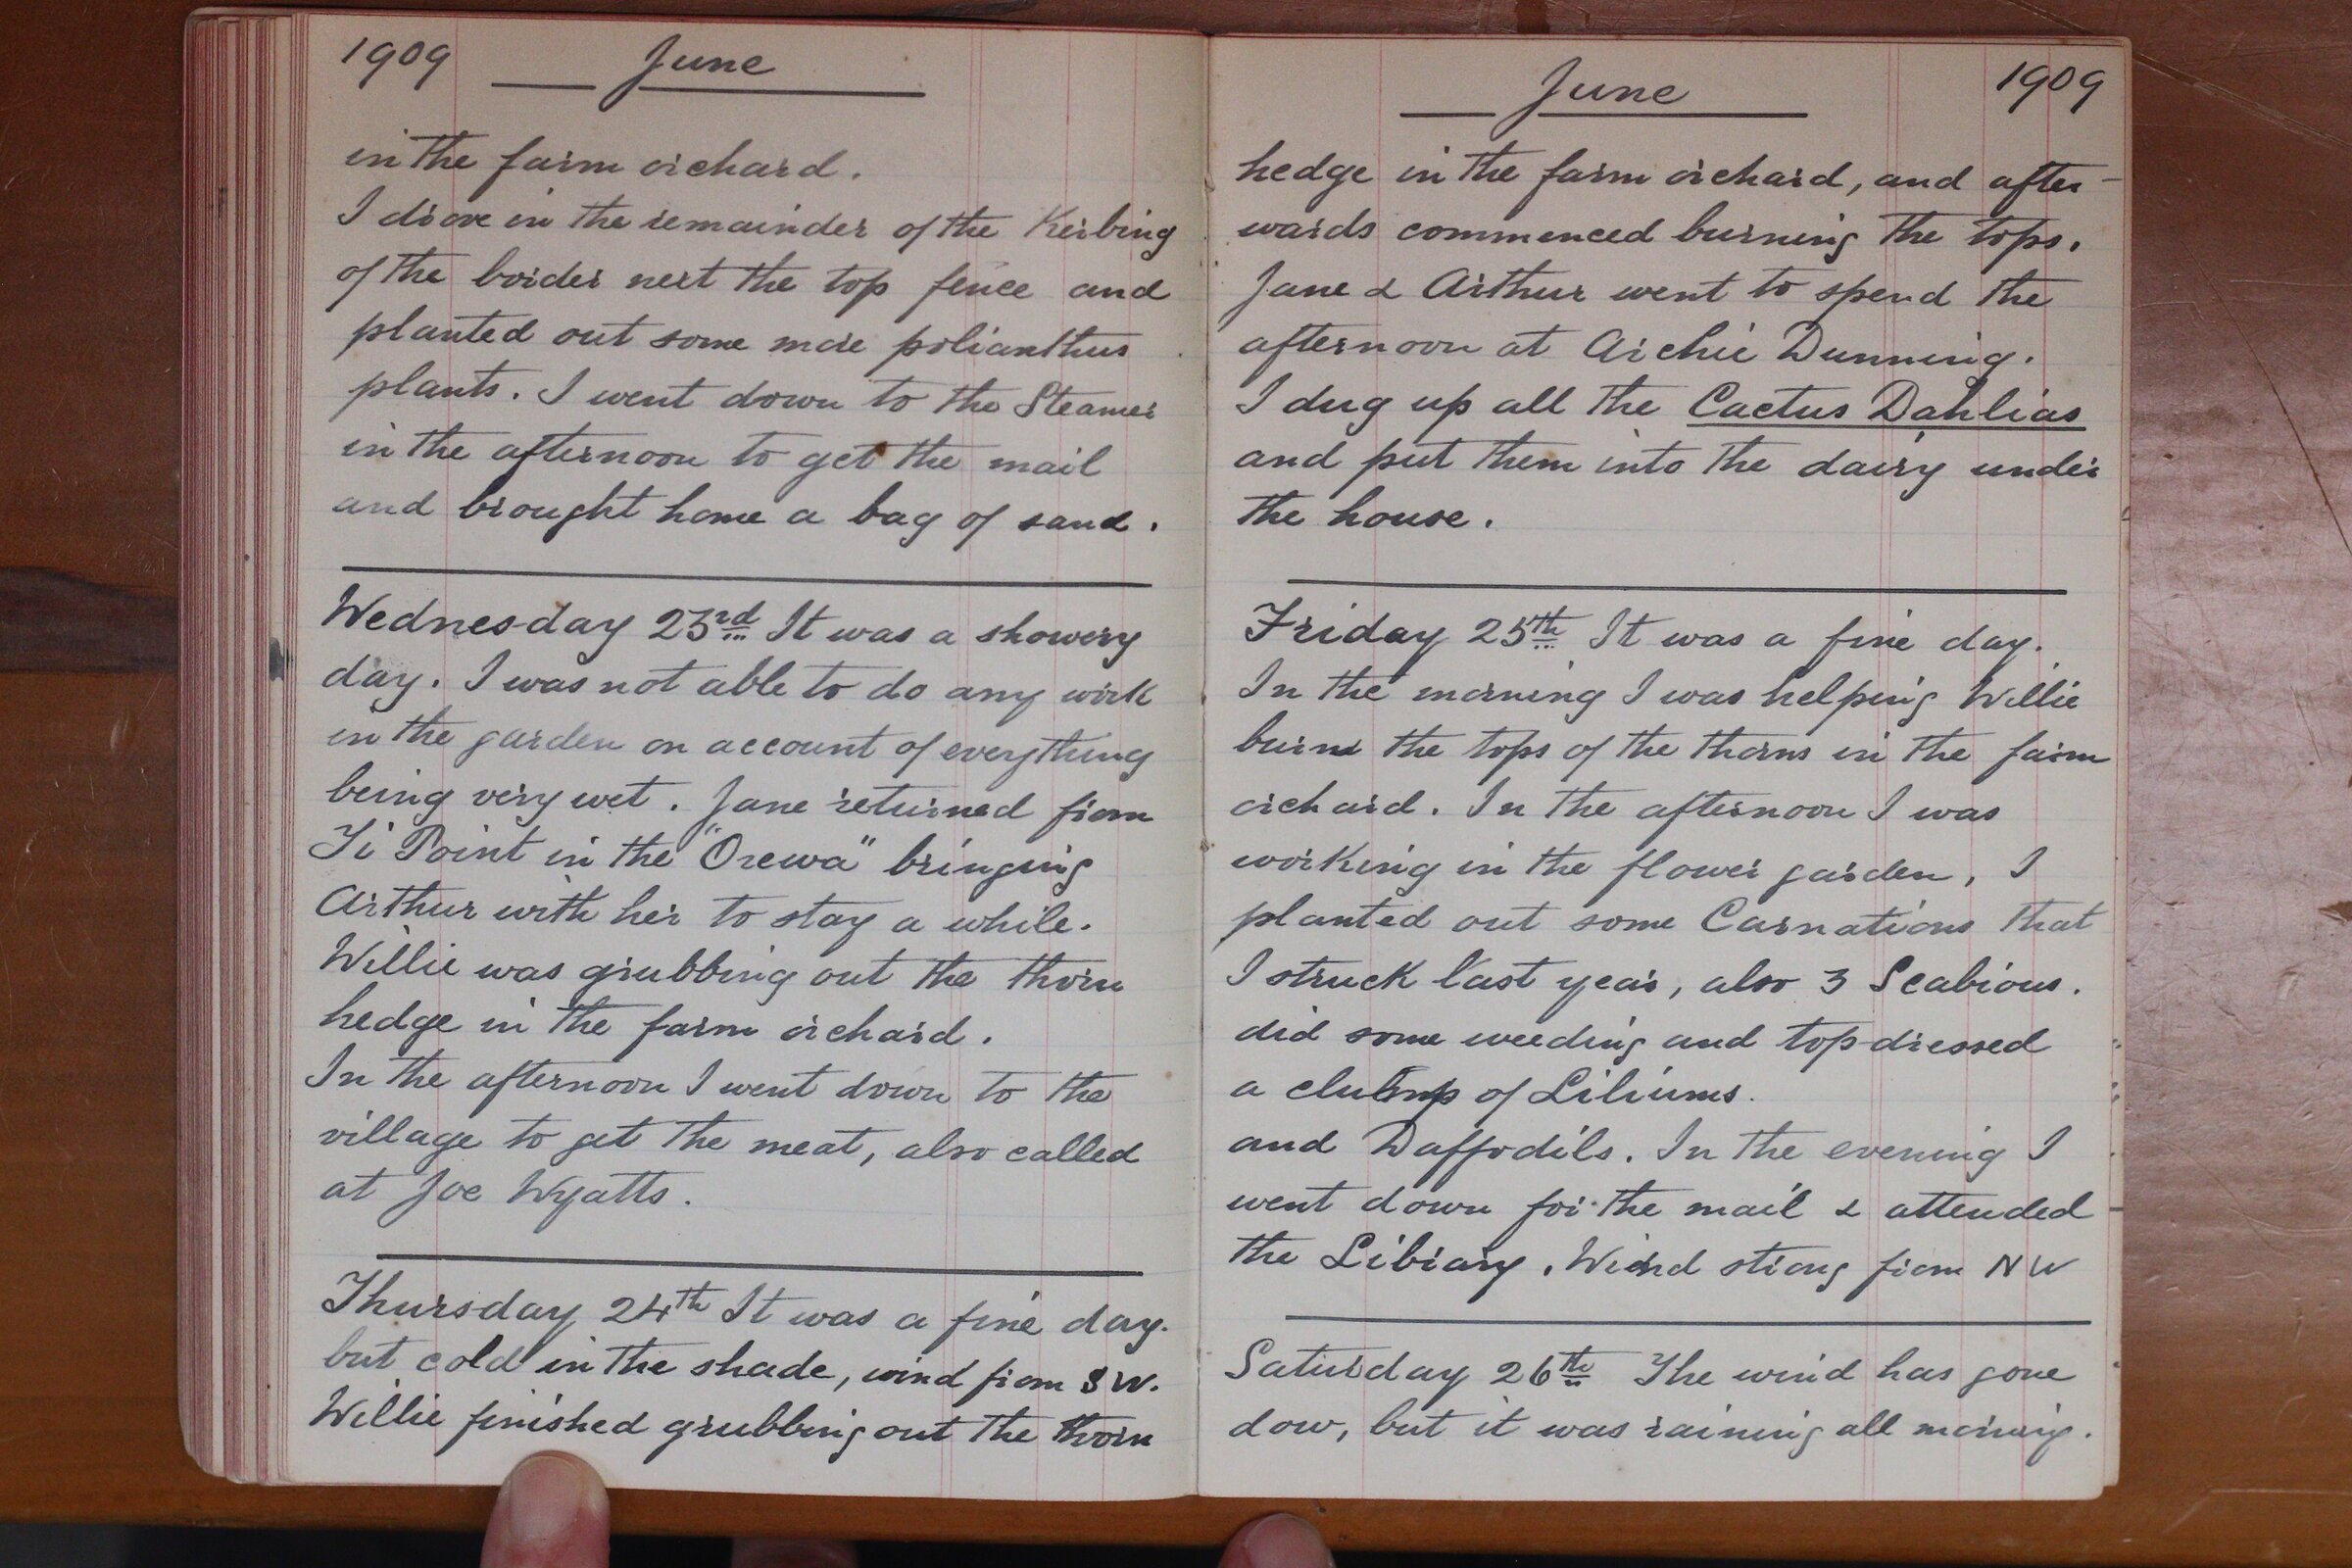 1909 June
in the farm orchard.
I drove in the remainder of the Kerbing
of the border next the top fence and
planted out some more polianthus
plants. I went down to the Steamer
in the afternoon to get the mail
and brought home a bag of sand.
Wednesday 23rd It was a showery
day. I was not able to do any work
in the garden on account of everything
being very wet. Jane returned from
Ti Point in the "Orewa" bringing
Arthur with her to stay a while.
Willie was grubbing out the thorn
hedge in the farm orchard.
In the afternoon I went down to the
village to get the meat, also called
at Joe Wyatts.
Thursday 24th It was a fine day.
but cold in the shade, wind from SW.
Willie finished grubbing out the thorn
June 1909
hedge in the farm orchard, and after-
wards commenced burning the tops.
Jane & Arthur went to spend the
afternoon at Archie Dunning.
I dug up all the Cactus Dahlias
and put them into the dairy under
the house.
Friday 25th It was a fine day.
In the morning I was helping Willie
burn the tops of the thorns in the farm
orchard. In the afternoon I was
working in the flower garden, I
planted out some Carnations that
I struck last year, also 3 Scabious.
did some weeding and top-dressed
a clump of Liliums.
and Daffodils. In the evening I
went down for the mail & attended
the Library. Wind strong from NW
Saturday 26th The wind has gone
dow, but it was raining all morning.